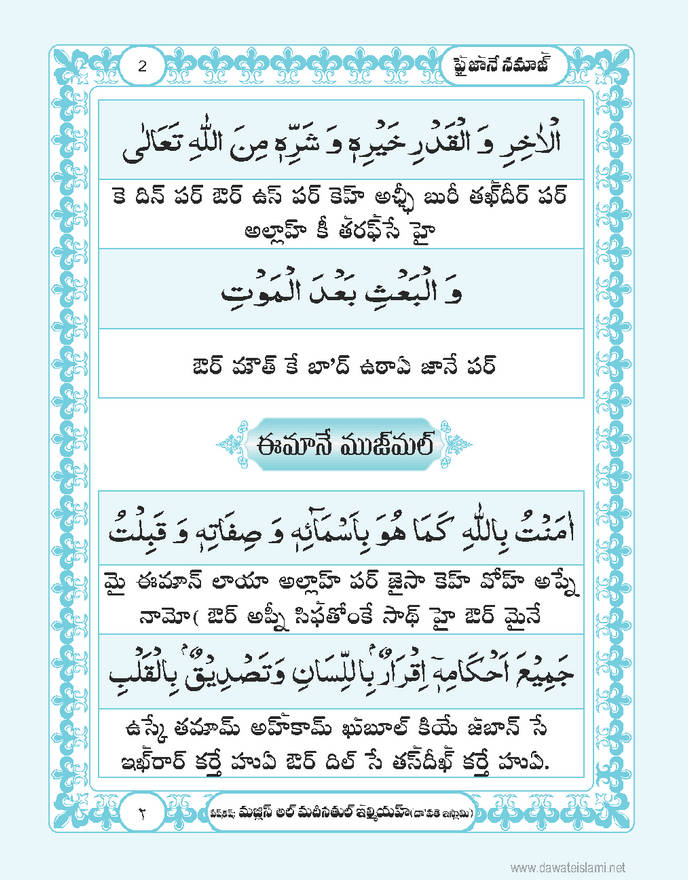 2
ఫైజానే నమాజ్
الْاٰخِرِ وَ الْقَدْرِ خَيْرِهٖ وَ شَرِّهٖ مِنَ اللّٰهِ تَعَالٰى
కె దిన్ పర్ ఔర్ ఉస్ పర్ కెహ్ అఛ్ఛీ బురీ తఖ్దీర్ పర్
అల్లాహ్ కీ తరఫ్‌సే హై
وَ الْبَعْثِ بَعْدَ الْمَوْتِ
ఔర్ మౌత్ కే బా'ద్ ఉఠాఏ జానే పర్
ఈమానే ముజ్‌మల్
اٰمَنْتُ بِاللّٰهِ كَمَا هُوَ بِاَسْمَآئِهٖ وَ صِفَاتِهٖ وَ قَبِلْتُ
మై ఈమాన్ లాయా అల్లాహ్ పర్ జైసా కెహ్ వోహ్ అప్నే
నామో( ఔర్ అప్నీ సిఫతోంకే సాథ్ హై ఔర్ మైనే
جَمِيْعَ اَحْكَامِهٖٓ اِقْرَارٌۢ بِاللِّسَانِ وَتَصْدِيْقٌۢ بِالْقَلْبِ
ఉస్కే తమామ్ అహ్‌కామ్ ఖుబూల్ కియే జబాన్ సే
ఇఖ్‌రార్ కర్తే హుఏ ఔర్ దిల్ సే తస్‌దీఖ్ కర్తే హుఏ.
٢
పేష్‌కష్: మజ్లిస్ అల్ మదీనతుల్ ఇల్మియహ్(దా'వతె ఇస్లామి)
www.dawateislami.net